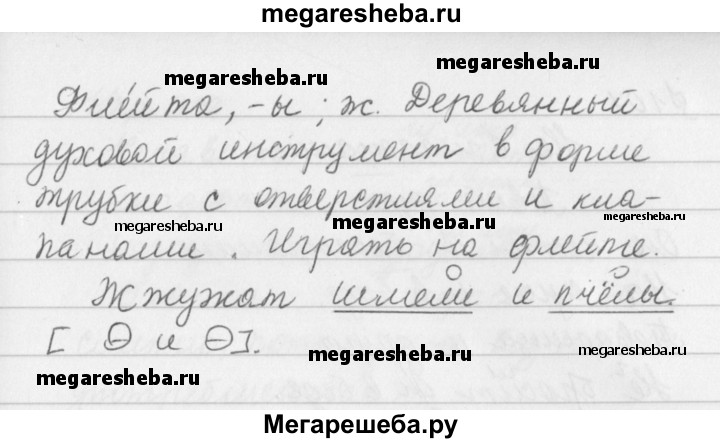 megaresheba.ru
megaresheba.ru
megaresheba.ru
Фле́йта, -ы; ж. Деревянный
духовой инструмент в форме
трубки с отверстиями и кла-
megaresheba.ru
megaresheba.ru
megaresheba.ru
панами. Играть на флейте.
Жжужат шмели и пчёлы.
[ О и О ].
megaresheba.ru
megaresheba.ru
megaresheba.ru
Мегарешеба.ру